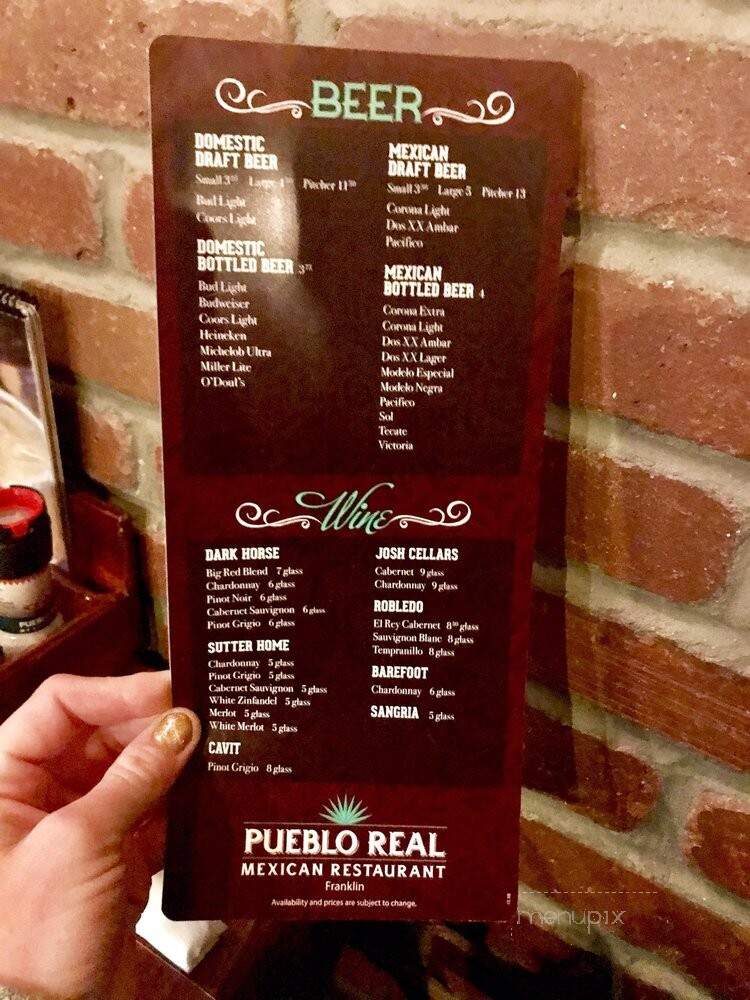 BEER
DOMESTIC
DRAFT BEER
Small 3⁵⁰ Large 4⁵⁰ Pitcher 11⁵⁰
Bud Light
Coors Light
DOMESTIC
BOTTLED BEER 3⁷⁵
Bud Light
Budweiser
Coors Light
Heineken
Michelob Ultra
Miller Lite
O'Doul's
MEXICAN
DRAFT BEER
Small 3⁵⁰ Large 5 Pitcher 13
Corona Light
Dos XX Ambar
Pacifico
MEXICAN
BOTTLED BEER 4
Corona Extra
Corona Light
Dos XX Ambar
Dos XX Lager
Modelo Especial
Modelo Negra
Pacifico
Sol
Tecate
Victoria
Wine
DARK HORSE
Big Red Blend 7 glass
Chardonnay 6 glass
Pinot Noir 6 glass
Cabernet Sauvignon 6 glass
Pinot Grigio 6 glass
SUTTER HOME
Chardonnay 5 glass
Pinot Grigio 5 glass
Cabernet Sauvignon 5 glass
White Zinfandel 5 glass
Merlot 5 glass
White Merlot 5 glass
CAVIT
Pinot Grigio 8 glass
JOSH CELLARS
Cabernet 9 glass
Chardonnay 9 glass
ROBLEDO
El Rey Cabernet 8⁵⁰ glass
Sauvignon Blanc 8 glass
Tempranillo 8 glass
BAREFOOT
Chardonnay 6 glass
SANGRIA 5 glass
PUEBLO REAL
MEXICAN RESTAURANT
Franklin
Availability and prices are subject to change.
menupix